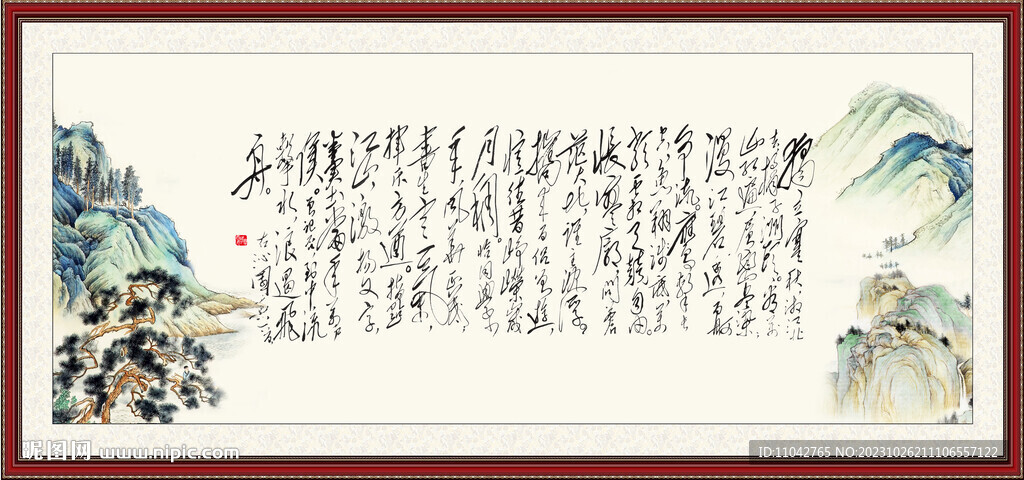 独立寒秋湘江
北去橘子洲头看万
山红遍层林尽染
漫江碧透百舸
争流。鹰击长空
鱼翔浅底万
类霜天竞自由。
怅寥廓问苍
茫大地谁主沉浮。
携来百侣曾游
忆往昔峥嵘岁
月稠。恰同学少
年风华正茂
书生意气
挥斥方遒。指点
江山激扬文字
粪土当年万户
侯。曾记否到中流
击水浪遏飞
舟。
沁园春
昵图网 www.nipic.com
ID:11042765 NO:20231026211106557122